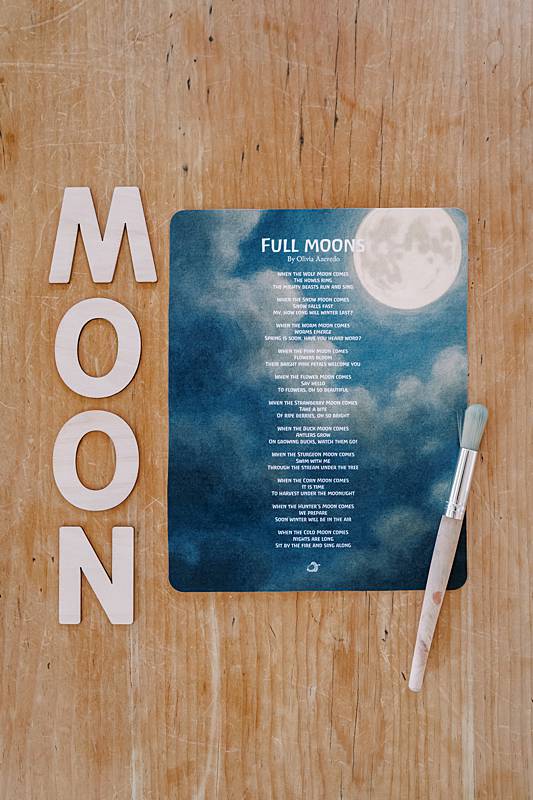 MOON
FULL MOONS
By Olivia Azevedo
WHEN THE WOLF MOON COMES
THE HOWLS RING
THE MIGHTY BEASTS RUN AND SING
WHEN THE SNOW MOON COMES
SNOW FALLS FAST
MY, HOW LONG WILL WINTER LAST?
WHEN THE WORM MOON COMES
WORMS EMERGE
SPRING IS SOON, HAVE YOU HEARD WORD?
WHEN THE PINK MOON COMES
FLOWERS BLOOM
THEIR BRIGHT PINK PETALS WELCOME YOU
WHEN THE FLOWER MOON COMES
SAY HELLO
TO FLOWERS, OH SO BEAUTIFUL
WHEN THE STRAWBERRY MOON COMES
TAKE A BITE
OF RIPE BERRIES, OH SO BRIGHT
WHEN THE BUCK MOON COMES
ANTLERS GROW
ON GROWING BUCKS, WATCH THEM GO!
WHEN THE STURGEON MOON COMES
SWIM WITH ME
THROUGH THE STREAM UNDER THE TREE
WHEN THE CORN MOON COMES
IT IS TIME
TO HARVEST UNDER THE MOONLIGHT
WHEN THE HUNTER'S MOON COMES
WE PREPARE
SOON WINTER WILL BE IN THE AIR
WHEN THE COLD MOON COMES
NIGHTS ARE LONG
SIT BY THE FIRE AND SING ALONG